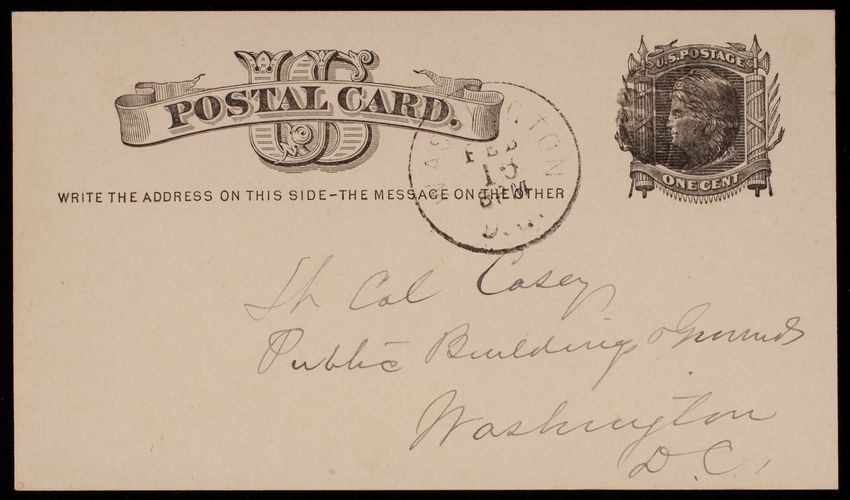 US
POSTAL CARD.
U.S. POSTAGE
ONE CENT
WRITE THE ADDRESS ON THIS SIDE–THE MESSAGE ON THE OTHER
WASHINGTON
FEB
13
8PM
D.C.
Lt Col Casey
Public Buildings & Grounds
Washington
D.C.